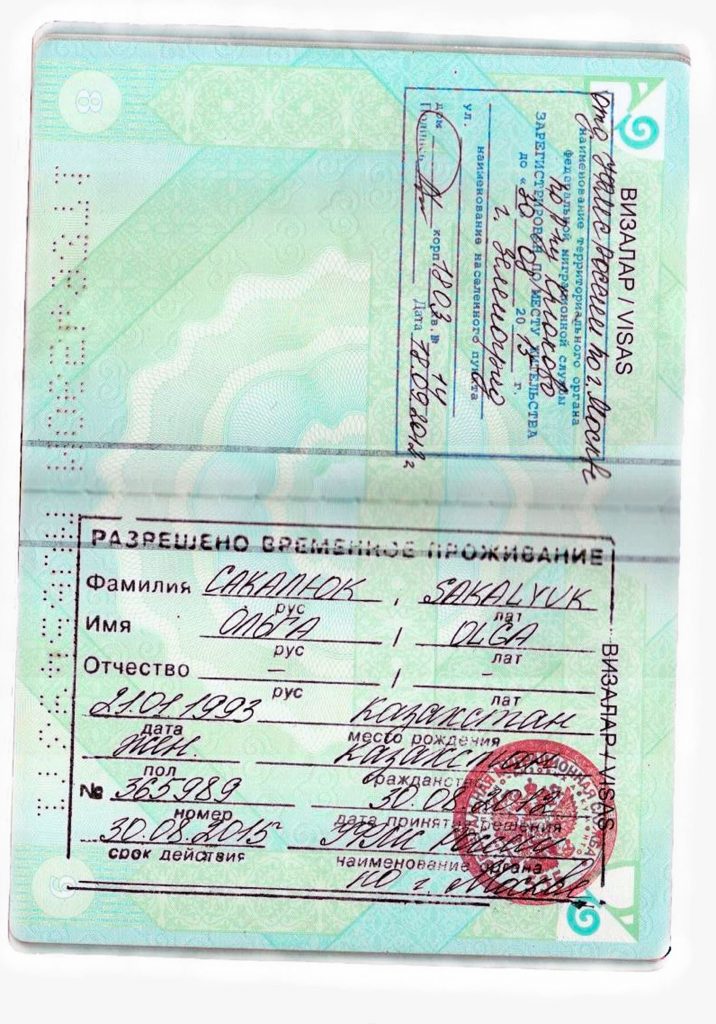 8
ВИЗАЛАР / VISAS
ОТД УФМС России по г. Москве
наименование территориального органа
федеральной миграционной службы
ЗАРЕГИСТРИРОВАН ПО МЕСТУ ЖИТЕЛЬСТВА
до «30» 08 2015 г.
г.
наименование населенного пункта
ул.
дом корп 1803 кв. № 14
Подпись Дата 18.09.2012 г
РАЗРЕШЕНО ВРЕМЕННОЕ ПРОЖИВАНИЕ
Фамилия САКАЛЮК , SAKALYUK
рус лат
Имя ОЛЬГА / OLGA
рус лат
Отчество – / -
рус лат
21.01.1993 Казахстан
дата место рождения
жен. Казахстан
пол гражданство
№ 365989 30.08.2012
номер дата принятия решения
30.08.2015 УФМС России
срок действия наименование органа
по г. Москве
ВИЗАЛАР / VISAS
9